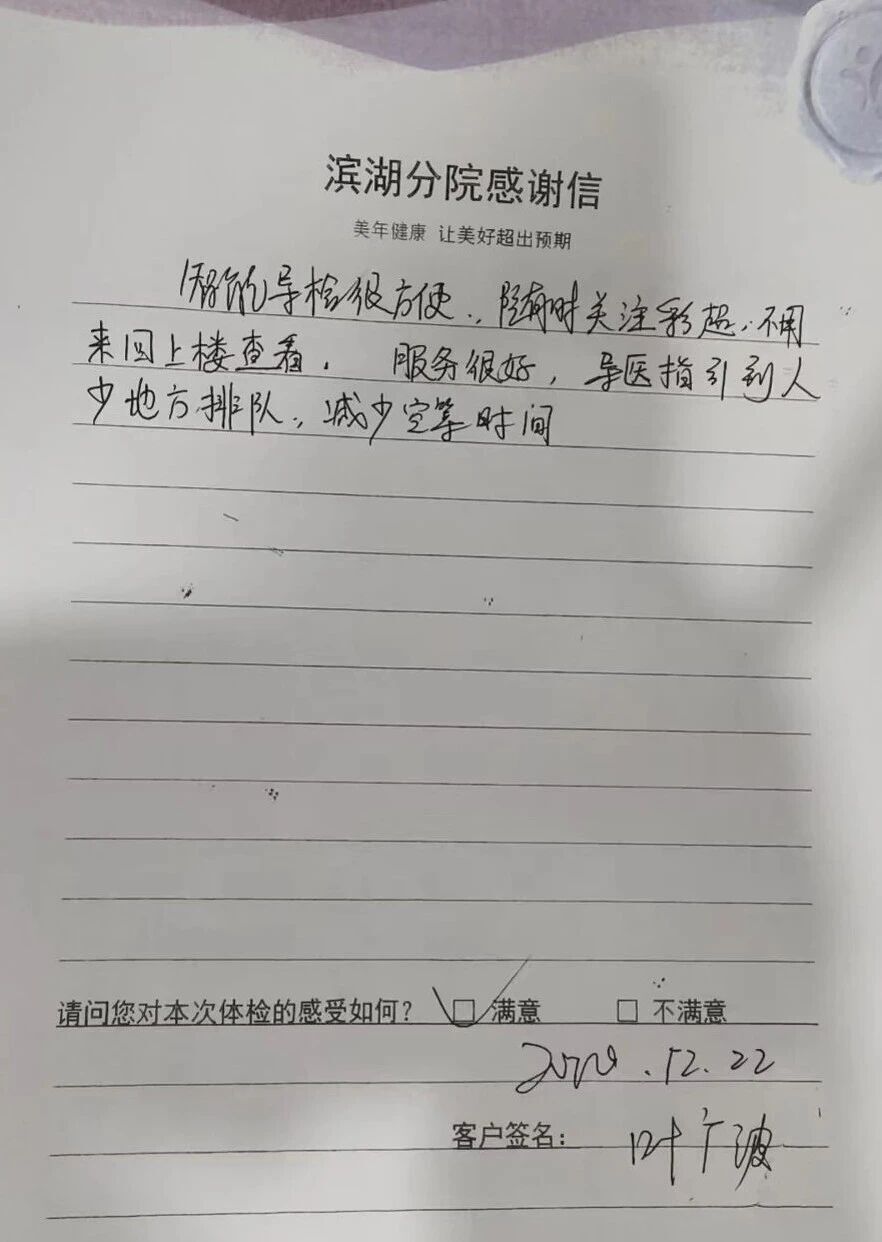 滨湖分院感谢信
美年健康 让美好超出预期
智能导检很方便,随时关注彩超,不用
来回上楼查看. 服务很好,导医指引到人
少地方排队,减少空等时间
请问您对本次体检的感受如何? □ 满意 □ 不满意
.12.22
客户签名: 叶广波